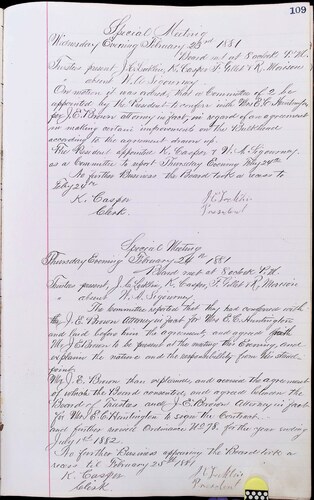 109
Special Meeting
Wednesday Evening February 23rd 1881
Board met at 8 oclock P.M.
Trustees present, J. C. K. Casper F. Gillet & R. Morison
absent W. A. Sigourney
One motion it was ordered, that a Committee of 2, be
appointed by the President to confer with Mrs E. C. Huntington
for J. E. Brown attorney in fact, in regard of an agreement
in making certain improvements on the Bulkhead
according to the agreement drawn up.
The President appointed K. Casper & W. A. Sigourney,
as a Committee to report Thursday Evening Feby 24th
No further Business the Board took a recess to
Feby 24th
K. Casper
Clerk
President
Special Meeting
Thursday Evening February 24th 1881
Board met at 8 oclock P.M.
Trustees present, J. C. K. Casper, F. Gillet & R. Morison
absent W. A. Sigourney
The Committee reported that they had confered with
the J. E. Brown Attorney in fact for Mrs E. C. Huntington
and laid before him the agreement, and agreed with
Mr J. E. Brown to be present at the meeting this Evening, and
explains the nature and the responsibility from this stand
point.
Mr J. E. Brown than explained, and the agreement
of which the Board consented, and agreed between the
Board of Trustees and J. E. Brown Attorney in fact
for Mrs E. C. Huntington to sign the Contract.
and further Ordinance No 78. for the year ending
July 1st 1882.
No further Business appearing the Board took a
recess till February 25th 1881
K. Casper
Clerk
President